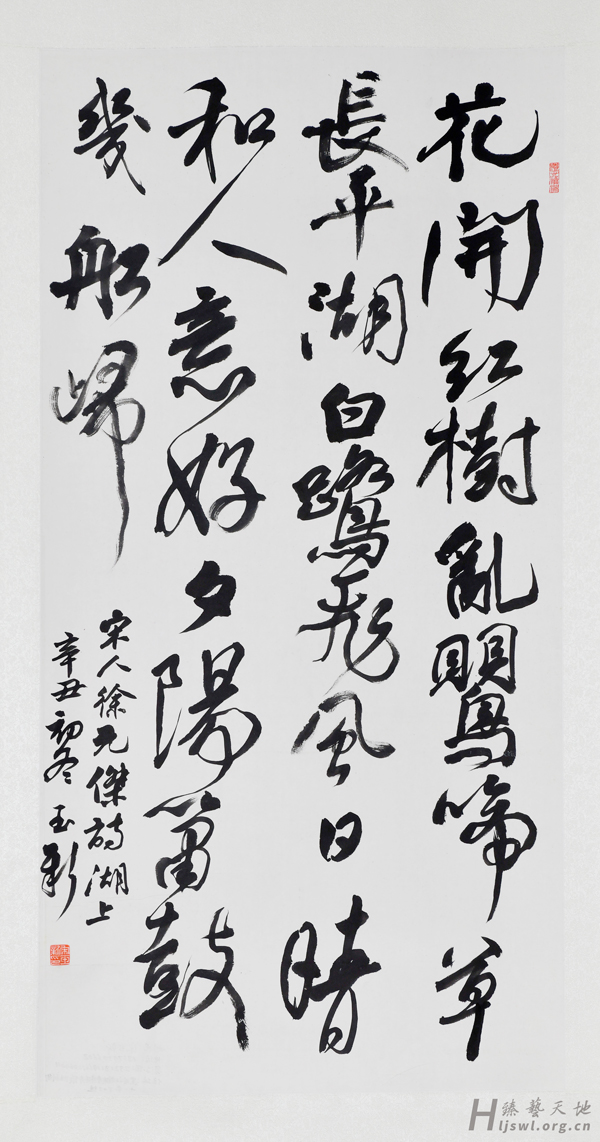 花開紅樹亂鸎啼草
長平湖白鷺飛風日晴
和人意好夕陽簫鼓
幾船歸
宋人徐元傑詩湖上
辛丑初冬玉
臻藝天地
Hljswl.org.cn